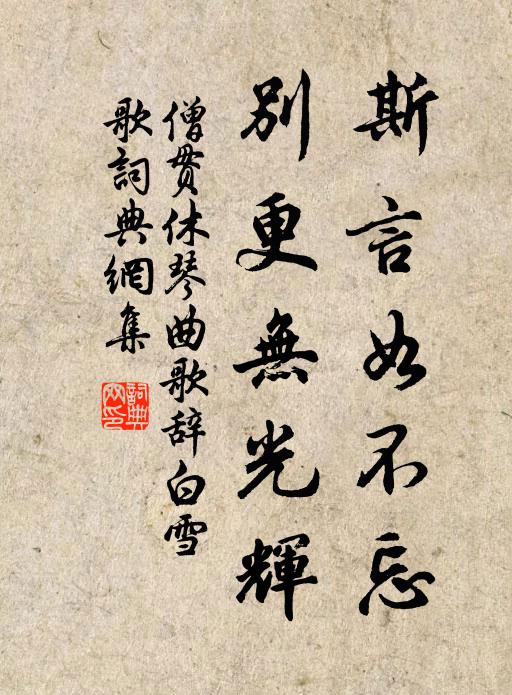 斯言如不忘
別更無光輝
僧貫休琴曲歌辞白雪
歌詞典網集
詞典
网印